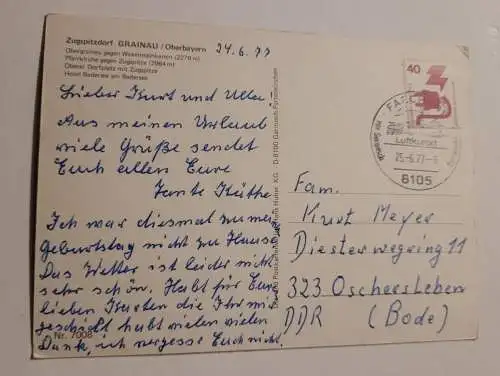 Zugspitzdorf GRAINAU / Oberbayern
Obergrainau gegen Waxensteinkamm (2276 m)
Pfarrkirche gegen Zugspitze (2964 m)
Oberer Dorfplatz mit Zugspitze
Hotel Badersee am Badersee
24.6.77
Lieber Kurt und Ulla!
Aus meinen Urlaub
viele Grüße sendet
Euch allen Eure
Tante Käthe
Ich war diesmal zu mei
Geburtstag nicht zu Hause
Das Wetter ist leider nicht
sehr schön. Habt für Eure
lieben Karten die Ihr mir
geschickt habt vielen vielen
Dank, ich vergesse Euch nicht.
Nr. 7008
Huber KG D-8100 Garmisch-Partenkirchen
40
Luftkurort
25.-6.77-
8105
Fam.
Kurt Meyer
Diesterwegring 11
323 Oschersleben
DDR (Bode)